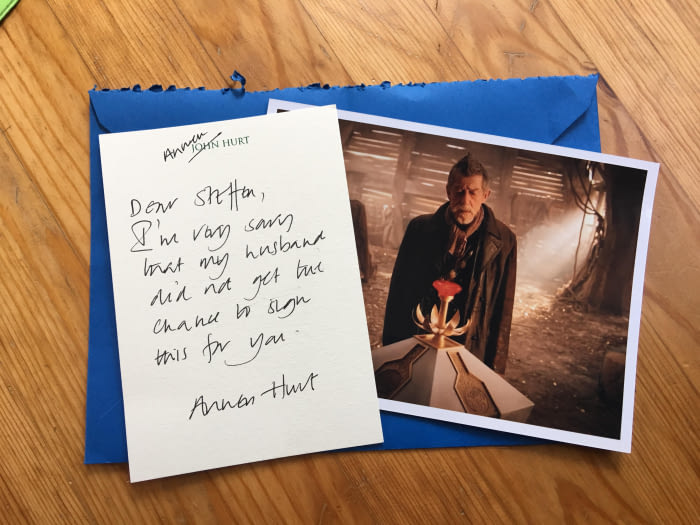 Anwen
JOHN HURT
Dear Steffen,
I'm very sorry
that my husband
did not get the
chance to sign
this for you.
Anwen Hurt